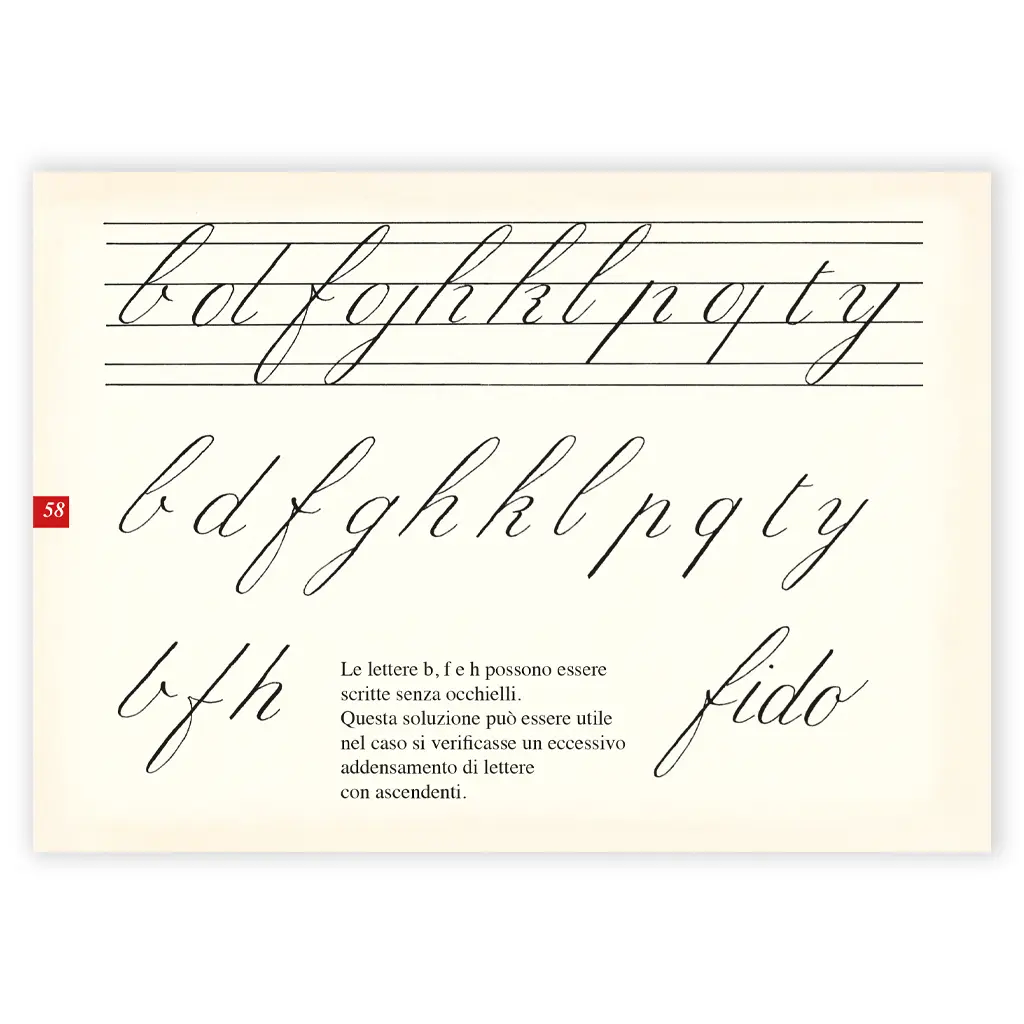 b d f g h k l p q t y
b d f g h k l p q t y
58
b f h
Le lettere b, f e h possono essere
scritte senza occhielli.
Questa soluzione può essere utile
nel caso si verificasse un eccessivo
addensamento di lettere
con ascendenti.
fido